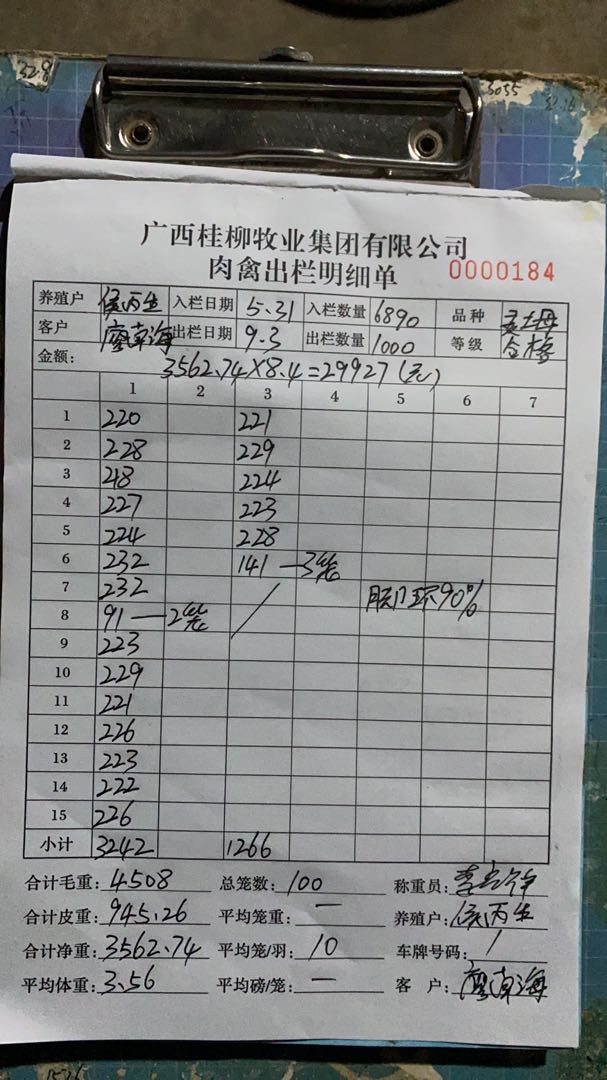 328
5055
广西桂柳牧业集团有限公司
肉禽出栏明细单 0000184
养殖户 侯丙生 入栏日期 5.31 入栏数量 6890 品种 土母
客户 廖南海 出栏日期 9.3 出栏数量 1000 等级 合格
金额: 3562.74×8.4=29927(元)
1 2 3 4 5 6 7
1 220 221
2 228 229
3 218 224
4 227 223
5 224 228
6 232 141—3笼
7 232 肛门环90%
8 91—2笼
9 223
10 229
11 221
12 226
13 223
14 222
15 226
小计 3242 1266
合计毛重: 4508 总笼数: 100 称重员: 李
合计皮重: 945.26 平均笼重: — 养殖户: 侯丙生
合计净重: 3562.74 平均笼/羽: 10 车牌号码: /
平均体重: 3.56 平均磅/笼: — 客 户: 廖南海